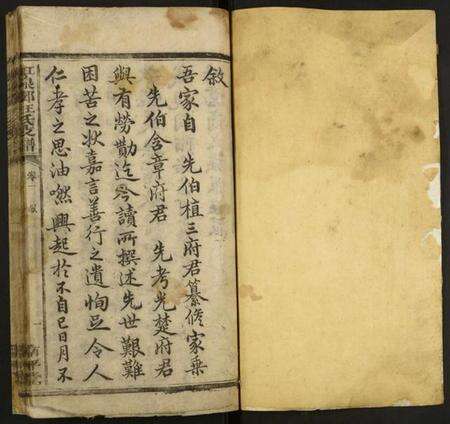 敘
吾家自 先伯植三府君纂修家乗
先伯含章府君 先考光楚府君
與有勞勩迄今讀所撰述先世艱難
困苦之狀嘉言善行之遺恂足令人
仁孝之思油然興起於不自已日月不
王氏支譜
卷一 敘